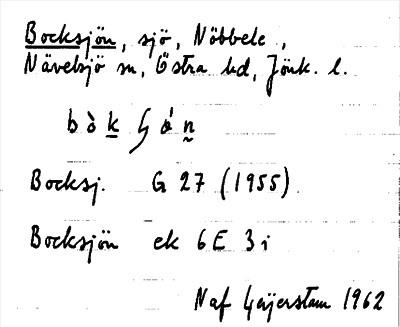 Bocksjön, sjö, Nöbbele,
Nävelsjö sn, Östra hd, Jönk. l.
Bocksj. G 27 (1955)
Bocksjön ek 6E 3i
Naf Gejerstam 1962